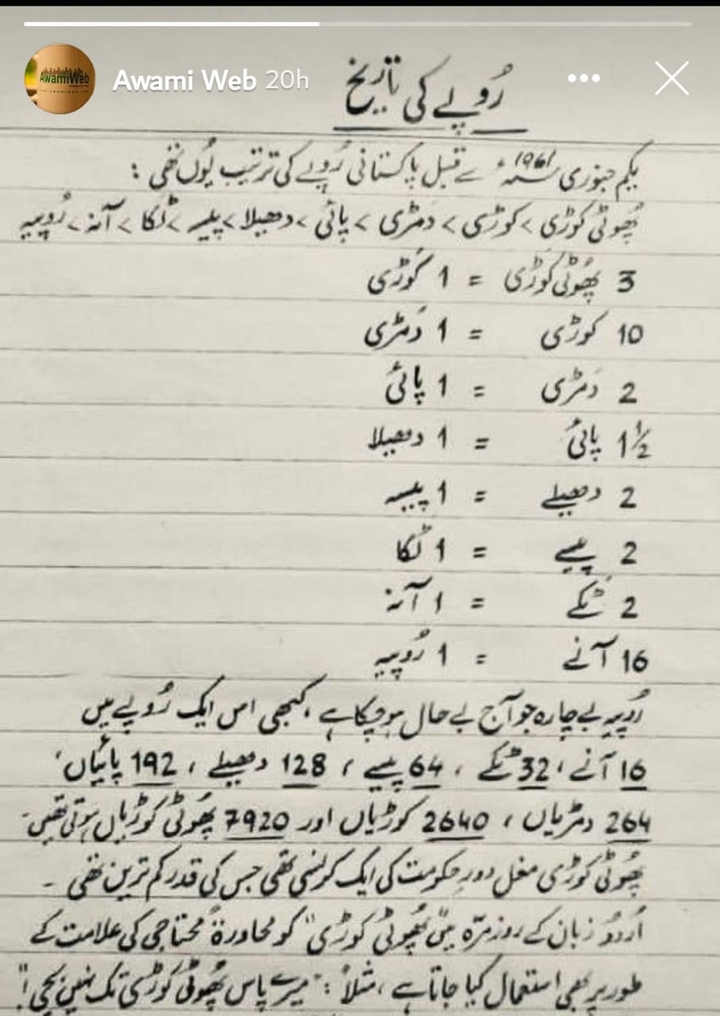 AwamiWeb
Awami Web 20h
رُوپے کی تاریخ
یکم جنوری سنہ 1961ء سے قبل پاکستانی رُوپے کی ترتیب یوں تھی :
پُھوٹی کوڑی > کوڑی > دمڑی > پائی > دھیلا > پیسہ > ٹکا > آنہ > رُوپیہ
3 پُھوٹی کوڑی = 1 کوڑی
10 کوڑی = 1 دَمڑی
2 دَمڑی = 1 پائی
1½ پائی = 1 دھیلا
2 دھیلے = 1 پیسہ
2 پیسے = 1 ٹکا
2 ٹکے = 1 آنہ
16 آنے = 1 رُوپیہ
رُوپیہ بے چارہ جو آج بے حال ہو چکا ہے ، کبھی اس ایک رُوپے میں
16 آنے ، 32 ٹکے ، 64 پیسے ، 128 دھیلے ، 192 پائیاں ،
264 دمڑیاں ، 2640 کوڑیاں اور 7920 پُھوٹی کوڑیاں ہوتی تھیں۔
پُھوٹی کوڑی مغل دورِ حکومت کی ایک کرنسی تھی جس کی قدر کم ترین تھی ۔
اُردُو زبان کے روزمرّہ میں "پُھوٹی کوڑی" کو محاورۃً مُحتاجی کی علامت کے
طور پر بھی استعمال کیا جاتا ہے ، مثلاً : "میرے پاس پُھوٹی کوڑی تک نہیں بچی !"